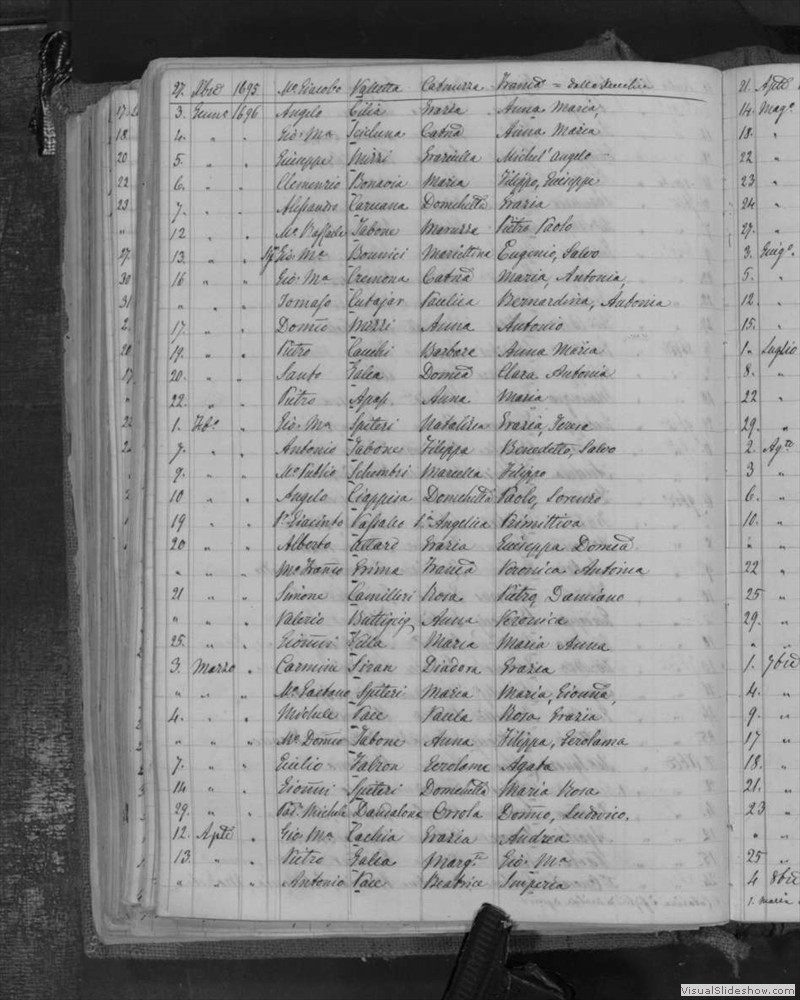 27. Xbre 1695 Mro Giacobo Valletta Cataruzza Francã = dalla Senectia
3. Gennro 1696 Angelo Cilia Grazia Anna Maria,
4. " " Gio: Ma Scicluna Catnã Anna Maria
5. " " Giuseppe Mizzi Graziulla Michel' Angelo
6. " " Clemenzio Bonavia Maria Filippo, Giuseppe
7. " " Alessandro Caruana Domchella Grazia
12 " " Mro Raffaele Tabone Maruzza Pietro Paolo
13. " " Gio: Ma Bonnici Mariettina Eugenio, Salvo
16 " " Gio: Ma Cremona Catnã Maria, Antonia,
" " " Tomaso Cutajar Paulica Bernardina, Antonia
17. " " Domco Mizzi Anna Antonio
19. " " Pietro Cauchi Barbara Anna Maria
20. " " Santo Galea Domcã Clara Antonia
22. " " Pietro Apap. Anna Maria
1. Febo " Gio: Ma Spiteri Natalizia Grazia,
7. " " Antonio Tabone Filippa Benedetto, Salvo
9. " " Mro Publio Schembri Marcella Filippo
10 " " Angelo Ciappisa Domchella Paolo, Lorenzo
19 " " Giacinto Vassallo Angelica Primittiva
20 " " Alberto Attard Grazia Giuseppa Domcã
" " " Mro Franco Grima Francã Veronica Antonia
21 " " Simone Camilleri Rosa Pietro, Damiano
" " " Valerio Buttigieg Anna Veronica
25. " " Gionni Zilla Maria Maria Anna
3. Marzo " Carmine Sivan Diadora Grazia
" " " Mro Gaetano Spiteri Maria Maria, Gionna,
4. " " Michele Pace Paula Rosa Grazia
" " " Mro Domco Tabone Anna Filippa, Gerolama
7. " " Giulio Falzon Gerolama Agata
14 " " Gionni Spiteri Domchella Maria Rosa
29. " " Michele Damdalona Orsola Domco, Ludovico,
12. Aple " Gio: Ma Zachia Grazia Andrea
13. " " Pietro Galea Margta Gio: Ma
" " " Antonio Pace Beatrice Imperia
21. Aple
14. Mago
18. "
22 "
23 "
24 "
27. "
3. Giugo
5. "
12. "
15. "
1. Luglio
8. "
22 "
29. "
2. Agto
3 "
6. "
10. "
" "
22 "
25 "
29. "
" "
1. 7bre
4. "
9. "
17 "
18. "
21. "
23 "
" "
25 "
4 8bre
1. Maria
VisualSlideshow.com